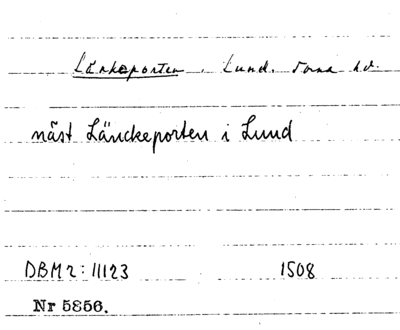 Länkeporten, Lund. Torna hd.
näst Länckeporten i Lund
DBM 2: 11123 1508
Nr 5856.